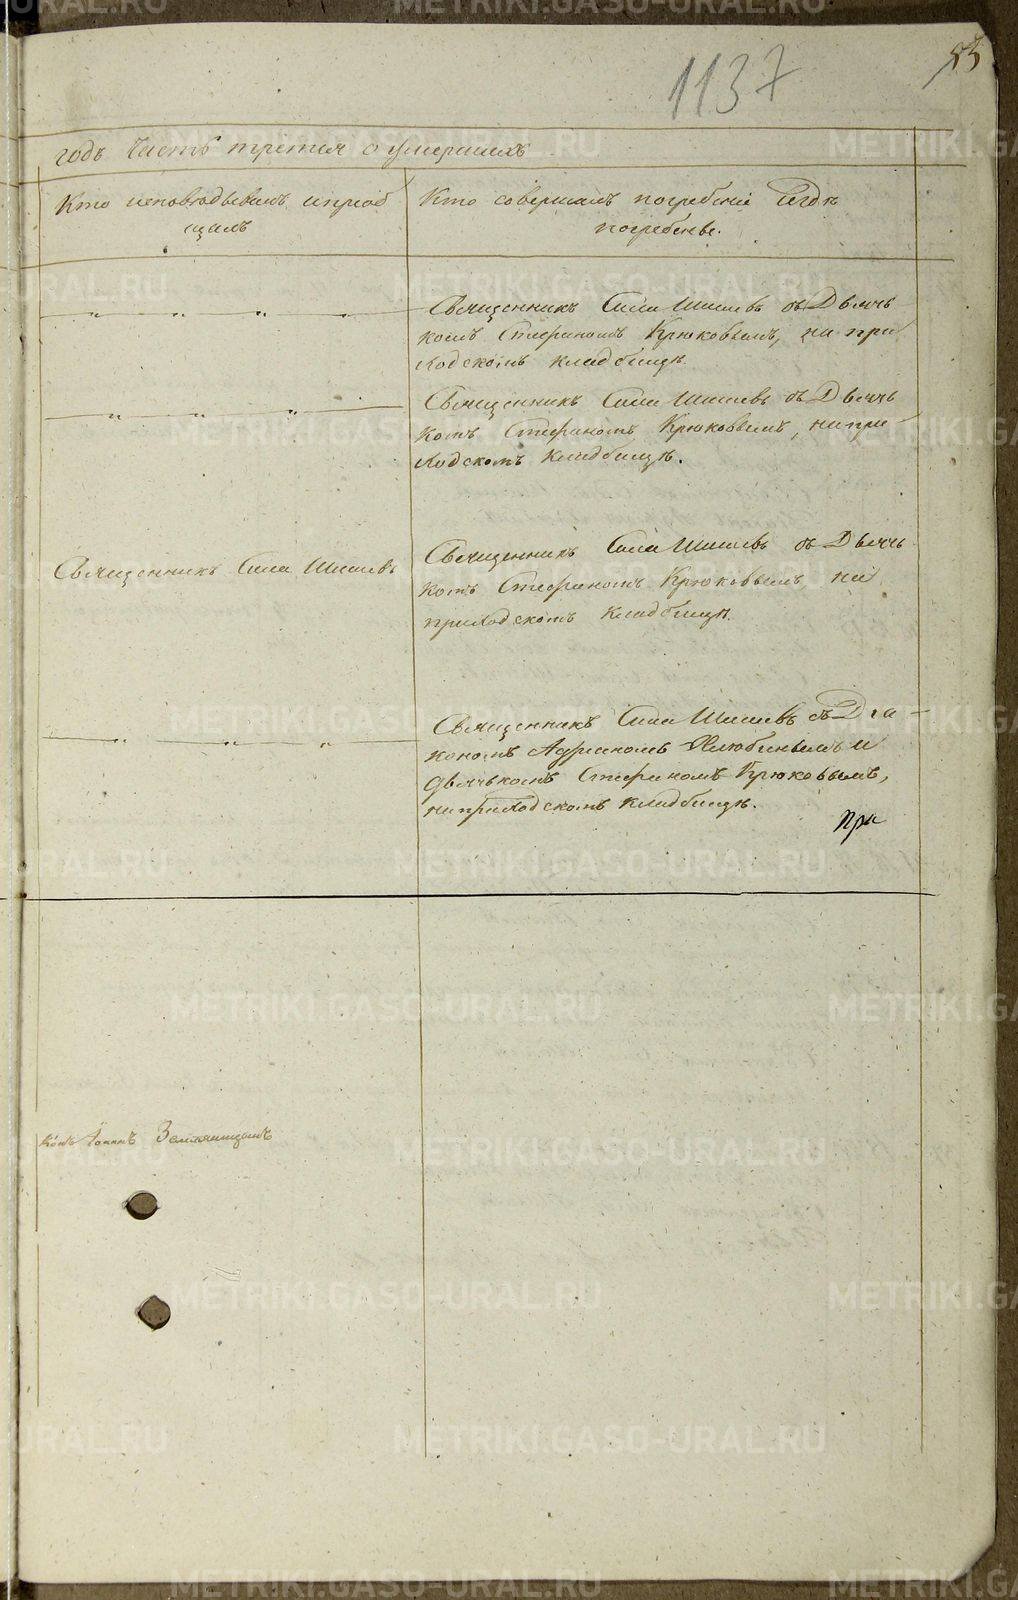 53
1137
годъ Часть третья о умершихъ
Кто исповѣдывалъ и пріоб
щалъ
Кто совершалъ погребеніе и гдѣ
погребены.
Священникъ Сила Шишевъ съ Дьячь
комъ Стефаномъ Крюковымъ, на при
ходскомъ кладбищѣ.
Священникъ Сила Шишевъ съ Дьячь
комъ Стефаномъ Крюковымъ, на при
ходскомъ кладбищѣ.
Священникъ Сила Шишевъ
Священникъ Сила Шишевъ съ Дьячь
комъ Стефаномъ Крюковымъ на
приходскомъ кладбищѣ.
Священникъ Сила Шишевъ съ Діа-
кономъ Адріаномъ Хлюбинымъ и
дьячькомъ Стефаномъ Крюковымъ,
на приходскомъ кладбищѣ.
При
комъ Іоанъ Земляницынъ
METRIKI.GASO-URAL.RU